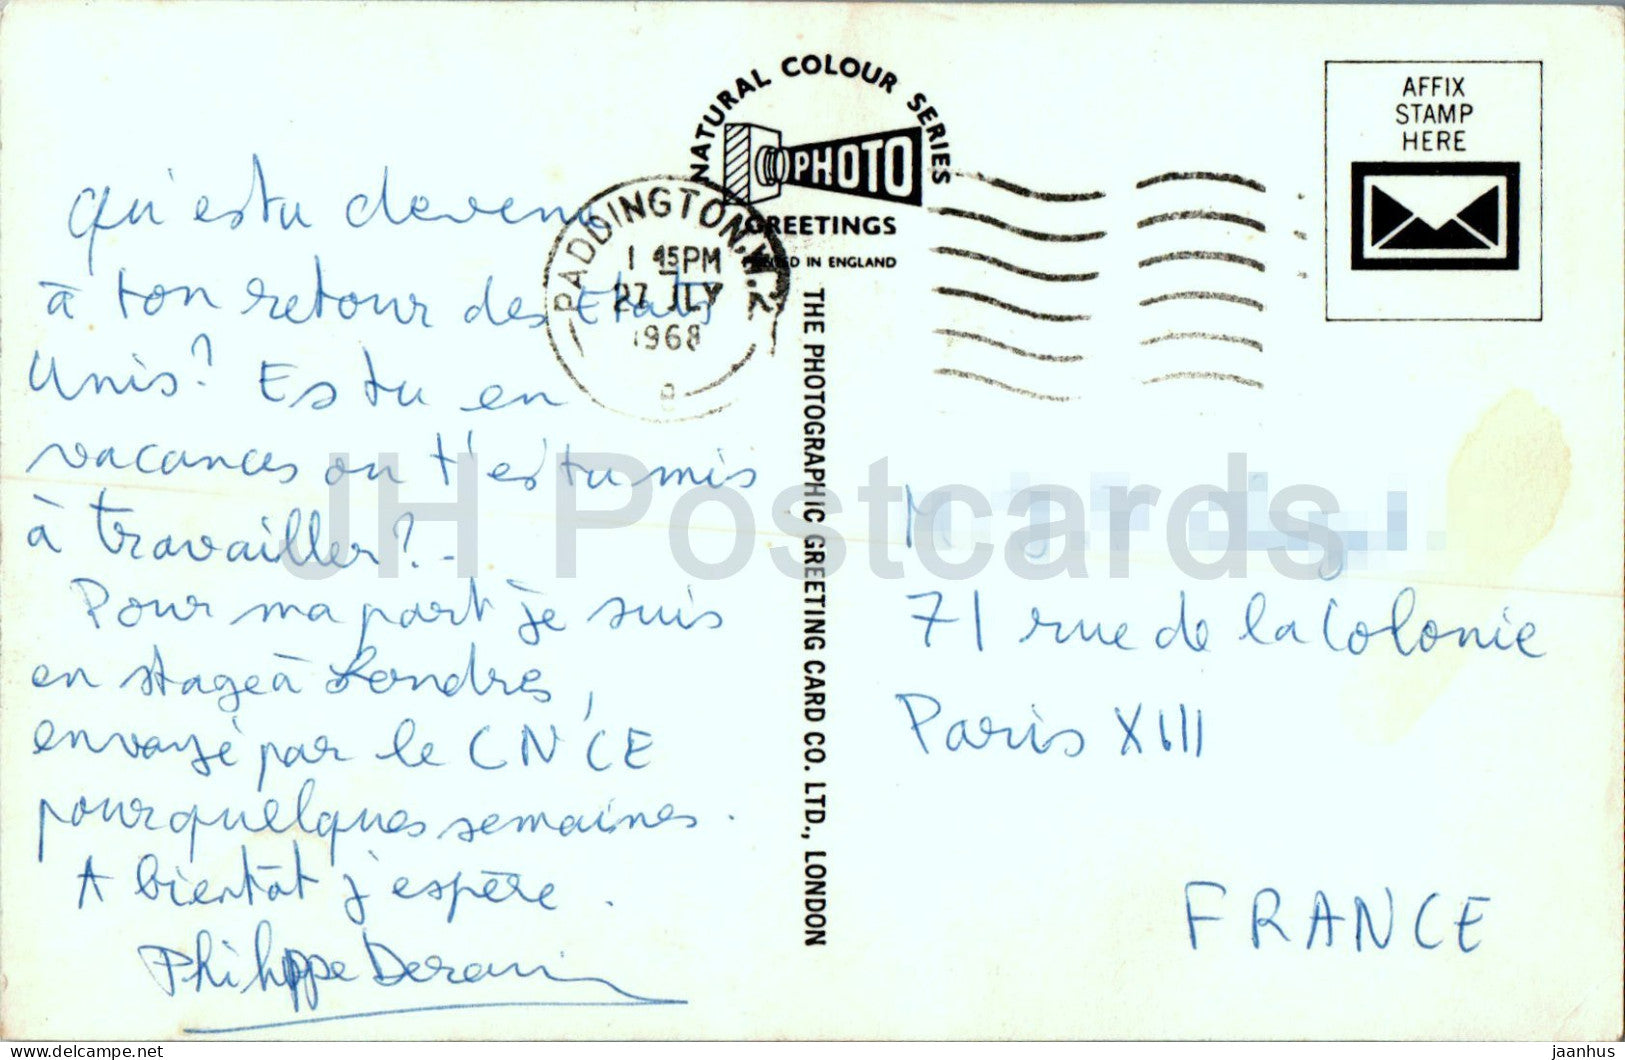 NATURAL COLOUR SERIES
PHOTO
GREETINGS
IN ENGLAND
AFFIX
STAMP
HERE
PADDINGTON. W.2
1 45 PM
27 JLY
1968
THE PHOTOGRAPHIC GREETING CARD CO. LTD., LONDON
qu'es tu devenu
à ton retour des Etats
Unis? Es tu en
vacances ou t'es tu mis
à travailler? -
Pour ma part je suis
en stage à Londres,
envoyé par le CNCE
pour quelques semaines.
A bientôt j'espère.
Philippe
M.
71 rue de la Colonie
Paris XIII
FRANCE
JH Postcards
delcampe.net
jaanhus